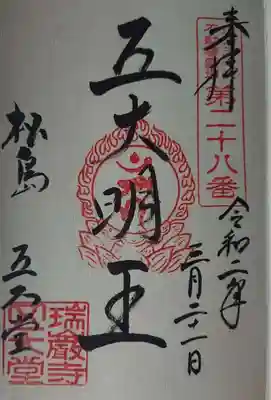 奉拝
第二十八番
令和二年
三月二十一日
五大明王
松島
五大堂
瑞巌寺
五大堂